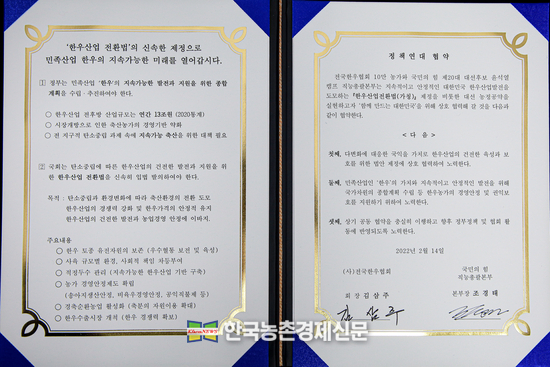 '한우산업 전환법'의 신속한 제정으로
민족산업 한우의 지속가능한 미래를 열어갑시다.
1 정부는 민족산업 '한우'의 지속가능한 발전과 지원을 위한 종합
계획을 수립·추진하여야 한다.
○ 한우산업 전후방 산업규모는 연간 13조원 (2020통계)
○ 시장개방으로 인한 축산농가의 경영기반 약화
○ 전 지구적 탄소중립 과제 속에 지속가능 축산을 위한 대책 필요
2 국회는 탄소중립에 따른 한우산업의 건전한 발전과 지원을 위
한 한우산업 전환법을 신속히 입법 발의하여야 한다.
목적 : 탄소중립과 환경변화에 따라 축산환경의 전환 도모
한우산업의 경쟁력 강화 및 한우가격의 안정적 유지
한우산업의 건전한 발전과 농업경영 안정에 이바지.
주요내용
○ 한우 토종 유전자원의 보존 (우수혈통 보전 및 육성)
○ 사육 규모별 환경, 사회적 책인 차등부여
○ 적정두수 관리 (지속가능한 한우산업 기반 구축)
○ 농가 경영안정제도 확립
(송아지생산안정, 비육우경영안정, 공익직불제 등)
○ 경축순환농업 활성화 (축분의 자원이용 확대)
○ 한우수출시장 개척 (한우 경쟁력 확보)
정책연대 협약
전국한우협회 10만 농가와 국민의 힘 제20대 대선후보 윤석열
캠프 직능총괄본부는 지속적이고 안정적인 대한민국 한우산업발전을
도모하는 「한우산업전환법(가칭)」 제정을 비롯한 대선 농정공약을
실현하고자 '함께 만드는 대한민국'을 위해 상호 협력해 갈 것을 다음과
같이 협약한다.
< 다 음 >
첫째, 다변화에 대응한 국익을 가져로 한우산업의 건전한 육성과 보
호를 위한 법안 제정에 상호 협력하여 노력한다.
둘째, 민족산업인 '한우'의 가치와 지속적이고 안정적인 발전을 위해
국가차원의 종합계획 수립 등 한우농가의 경영안정 및 권익보
호를 지원하기 위하여 노력한다.
셋째, 상기 공동 협약을 충실히 이행하고 향후 정부정책 및 협회 활
동에 반영되도록 노력한다.
2022년 2월 14일
(사)전국한우협회
국민의 힘
직능총괄본부
회 장 김 삼 주
본부장 조 경 태
김 삼 주
한국농촌경제신문